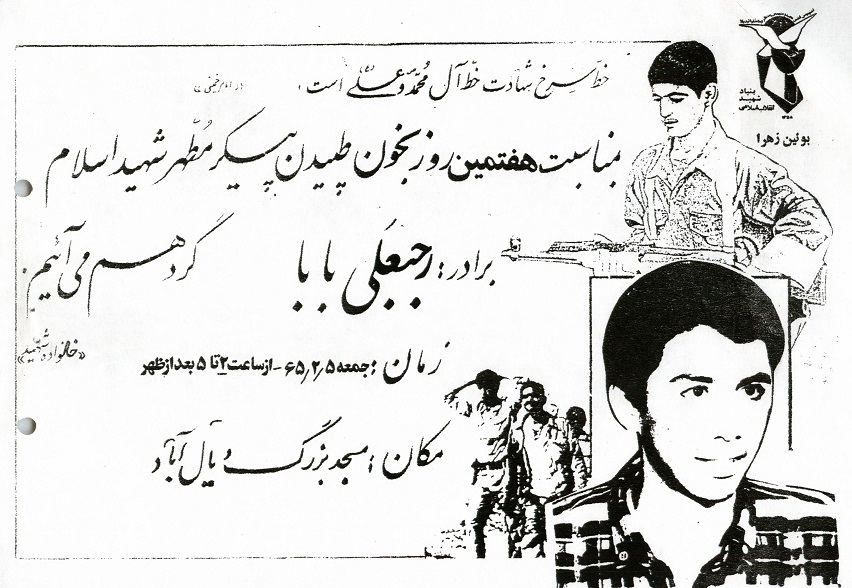 بنیاد
شهید
انقلاب اسلامی
بوئین زهرا
خطّ سرخ شهادت خطّ آل محمّد و علی است. «امام خمینی»
بمناسبت هفتمین روز بخون طپیدن پیکر مطّهر شهید اسلام
برادر: رجبعلی بابا گرد هم می آئیم.
«خانواده شهید»
زمان: جمعه ۶۵/۲/۵ - از ساعت ۲ تا ۵ بعد از ظهر
مکان: مسجد بزرگ